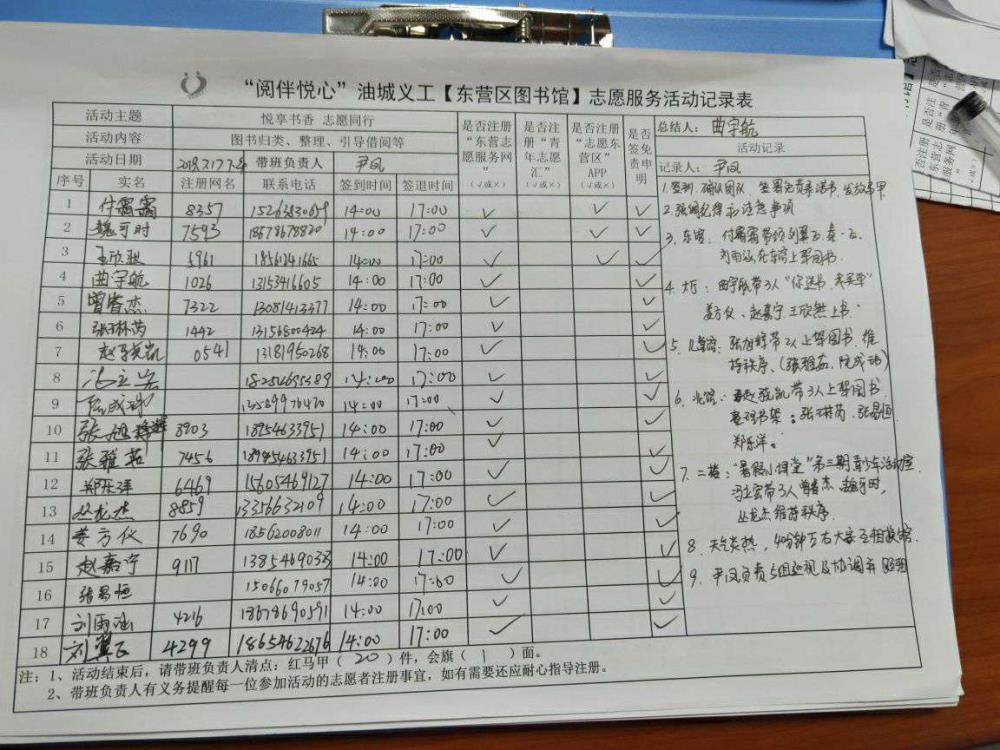 “阅伴悦心”油城义工【东营区图书馆】志愿服务活动记录表
活动主题 悦享书香 志愿同行 是否注册“东营志愿服务网”（√或×） 是否注册“青年志愿汇”（√或×） 是否注册“志愿东营区”APP（√或×） 是否签免责申明 总结人：曲宇航
活动内容 图书归类、整理、引导借阅等 活动记录
活动日期 带班负责人 尹凤 记录人：尹凤
序号 实名 注册网名 联系电话 签到时间 签退时间
1 付霄霄 8357 15263830659 14:00 17:00 √ √ √
2 魏可时 7593 18678678820 14:00 17:00 √ √ √
3 5961 18561241665 14:00 17:00 √ √ √
4 曲宇航 1026 13153416605 14:00 17:00 √ √
5 曾睿杰 7322 13081413377 14:00 17:00 √ √
6 张琳芮 1442 13156800424 14:00 17:00 √ √
7 0541 13181950268 14:00 17:00 √ √
8 18254695389 14:00 17:00 √ √
9 14:00 17:00 √ √
10 8903 18954633951 14:00 17:00 √ √
11 张雅茹 7456 14:00 17:00 √ √
12 郑乐洋 6469 15605469127 14:00 17:00 √ √
13 丛龙杰 8859 13356632109 14:00 17:00 √ √
14 姜方仪 7690 18562008011 14:00 17:00 √ √
15 赵嘉宁 9117 14:00 17:00 √ √
16 张昌恒 15066079057 14:00 17:00 √ √
17 刘雨涵 4216 18678690591 14:00 17:00 √ √
18 刘翼飞 4299 18654622676 14:00 17:00 √ √
1.签到，确认团队
2.强调纪律和注意事项
3.东馆：付霄霄带领刘翼飞
上架图书。
4.大厅：曲宇航带3人“你选书 我买单”
姜方仪、赵嘉宁、王欣然上书。
5.带2人上架图书，维
持秩序、
6.北馆：带3人上架图书
整理书架：张琳芮、张昌恒
郑乐洋。
7.二楼：“暑假小课堂”第三期青少年活动室
带3人曾睿杰、魏可时，
丛龙杰维持秩序。
8.天气炎热，40分钟左右大家互相换馆。
9.尹凤负责各组巡视及协调并照相
注：1、活动结束后，请带班负责人清点：红马甲（20）件，会旗（1）面。
2、带班负责人有义务提醒每一位参加活动的志愿者注册事宜，如有需要还应耐心指导注册。